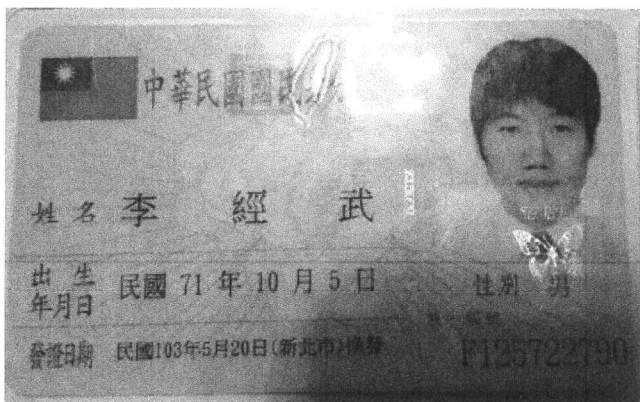 中華民國國
姓名 李經武
出生年月日 民國 71 年 10 月 5 日 性別 男
發證日期 民國103年5月20日(新北市)換發 F125722790